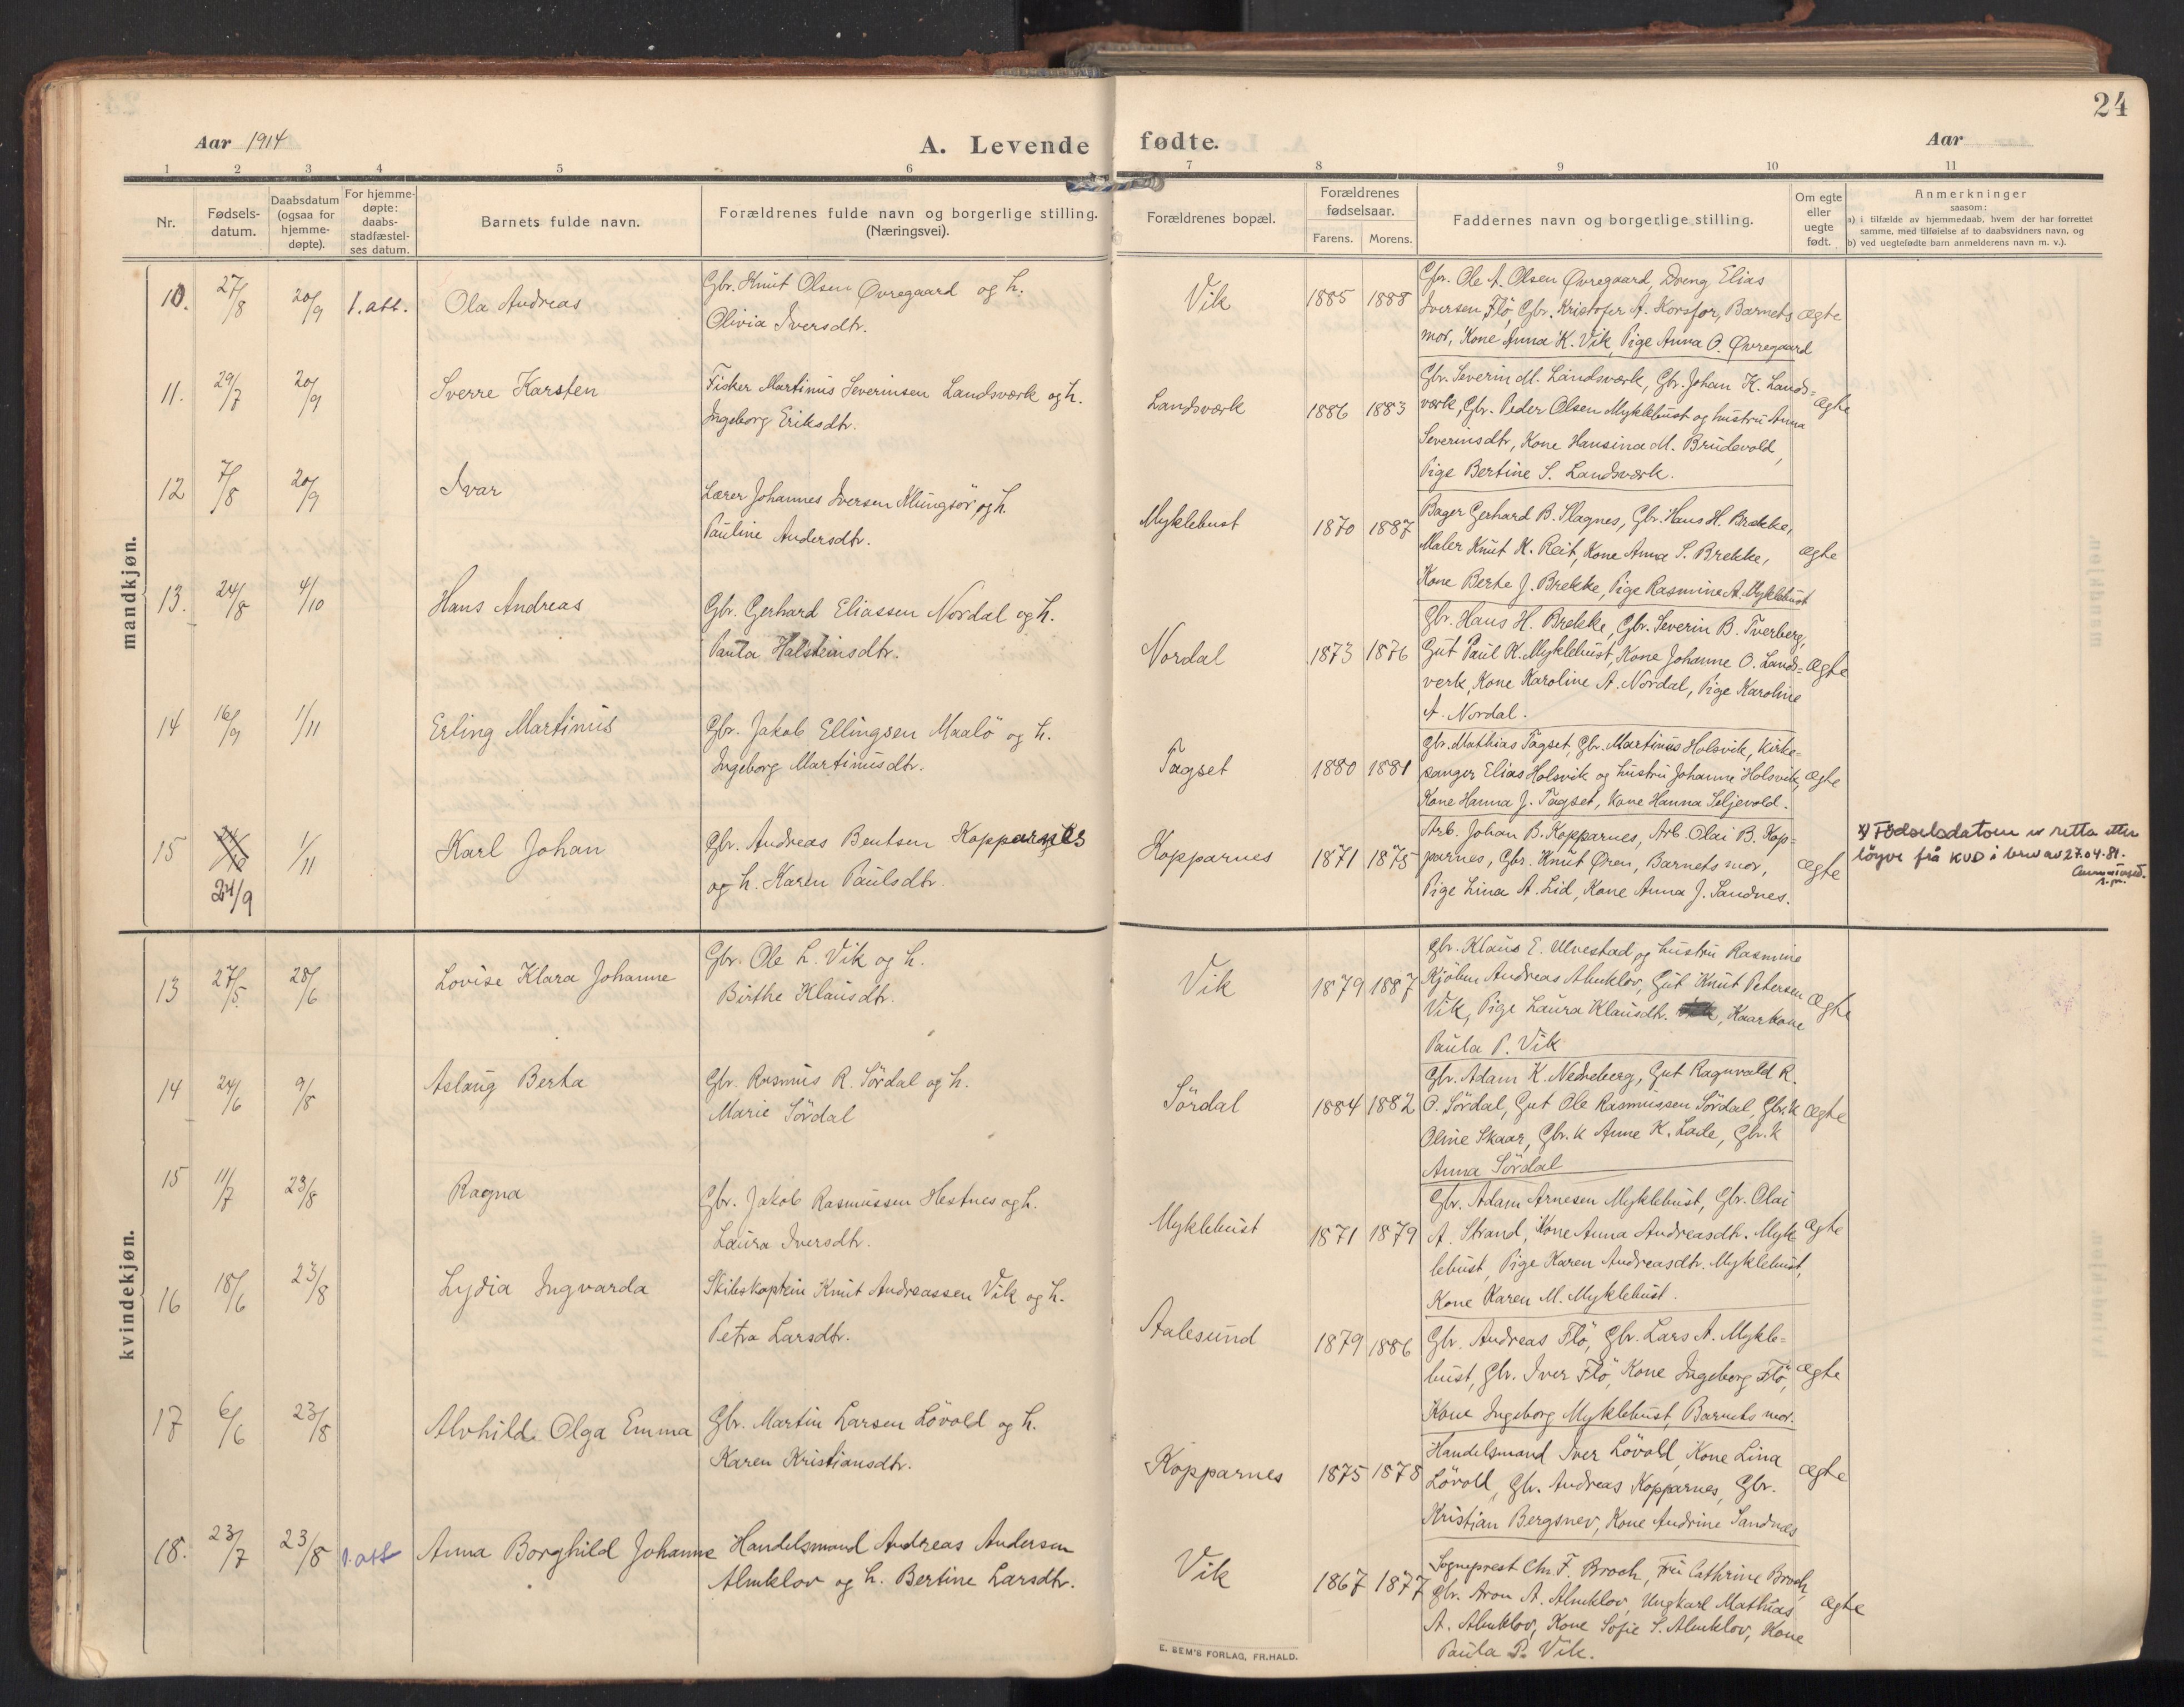 24
Aar 1914
A. Levende fødte.
Aar
1 2 3 4 5 6 7 8 9 10 11
Nr.
Fødsels-
datum.
Daabsdatum
(ogsaa for
hjemme-
døpte).
For hjemme-
døpte:
daabs-
stadfæstel-
ses datum.
Barnets fulde navn.
Forældrenes fulde navn og borgerlige stilling.
(Næringsvei).
Forældrenes bopæl.
Forældrenes
fødselsaar.
Farens. Morens.
Faddernes navn og borgerlige stilling.
Om egte
eller
uegte
født.
Anmerkninger
saasom:
a) i tilfælde av hjemmedaab, hvem der har forrettet
samme, med tilføielse af to daabsvidners navn, og
b) ved uegtefødte barn anmelderens navn m. v.).
mandkjøn.
10. 27/8 20/9 1. att. Ola Andreas
Gbr. Knut Olsen Øvregaard og h.
Olivia Iversdtr.
Vik 1885 1888
Gbr. Ole A. Olsen Øvregaard, Dreng Elias
Iversen Flö, Gbr. Kristofer A. Korsfor, Barnets
mor, Kone Anna K. Vik, Pige Anna O. Øvregaard
ægte
11. 29/7 20/9 Sverre Karsten
Fisker Martinus Severinsen Landsværk og h.
Ingeborg Eriksdtr.
Landsværk 1886 1883
Gbr. Severin M. Landsværk, Gbr. Johan K. Lands=
værk, Gbr. Peder Olsen Myklebust og hustru Anna
Severinsdtr, Kone Hansina M. Brudevold,
Pige Bertine S. Landsværk.
ægte
12 7/8 20/9 Ivar
Lærer Johannes Iversen Klungsör og h.
Pauline Andersdtr.
Myklebust 1870 1887
Bager Gerhard B. Slagnes, Gbr. Hans H. Brekke,
Maler Knut K. Reit, Kone Anna S. Brekke,
Kone Berte J. Brekke, Pige Rasmine A. Myklebust
ægte
13. 24/8 4/10 Hans Andreas
Gbr. Gerhard Eliassen Nordal og h.
Paula Halsteinsdtr.
Nordal 1873 1876
Gbr. Hans H. Brekke, Gbr. Severin B. Tverberg,
Gut Paul K. Myklebust, Kone Johanne O. Lands=
verk, Kone Karoline A. Nordal, Pige Karoline
A. Nordal.
ægte
14 16/9 1/11 Erling Martinus
Gbr. Jakob Ellingsen Maalö og h.
Ingeborg Martinusdtr.
Tagset 1880 1881
Gbr. Mathias Tagset, Gbr. Martinus Holsvik, Kirke-
sanger Elias Holsvik og hustru Johanne Holsvik,
Kone Hanna J. Tagset, Kone Hanna Seljevold.
ægte
15 24/9 1/11 Karl Johan
Gbr. Andreas Bentsen Kopparnes
og h. Karen Paulsdtr.
Kopparnes 1871 1875
Arb. Johan B. Kopparnes, Arb. Olai B. Kop=
parnes, Gbr. Knut Øren, Barnets mor,
Pige Lina A. Lid, Kone Anna J. Sandnes.
ægte
x) Fødselsdatoen er retta etter
löyve frå KUD i brev av 27.04.81.
kvindekjøn.
13 27/5 28/6 Lovise Klara Johanne
Gbr. Ole L. Vik og h.
Birthe Klausdtr.
Vik 1879 1887
Gbr. Klaus E. Ulvestad og hustru Rasmine
Kjöbm Andreas Almklov, Gut Knut Petersen
Vik, Pige Laura Klausdtr., Kaarkone
Paula P. Vik
ægte
14 24/6 9/8 Aslaug Berta
Gbr. Rasmus R. Sördal og h.
Marie Sördal
Sördal 1884 1882
Gbr. Adam K. Nedreberg, Gut Ragnvald R.
O. Sördal, Gut Ole Rasmussen Sördal, Gbr. K
Oline Skaar, Gbr. K Anne K. Lade, Gbr. K
Anna Sördal
ægte
15 11/7 23/8 Ragna
Gbr. Jakob Rasmussen Hestnes og h.
Laura Iversdtr.
Myklebust 1871 1879
Gbr. Adam Arnesen Myklebust, Gbr. Olai
A. Strand, Kone Anna Andreasdtr. Myk
lebust, Pige Karen Andreasdtr. Myklebust,
Kone Karen M. Myklebust.
ægte
16 18/6 23/8 Lydia Ingvarda
Skibskaptein Knut Andreassen Vik og h.
Petra Larsdtr.
Aalesund 1879 1886
Gbr. Andreas Flö, Gbr. Lars A. Mykle=
bust, Gbr. Iver Flö, Kone Ingeborg Flö,
Kone Ingeborg Myklebust, Barnets mor.
ægte
17 6/6 23/8 Alvhild Olga Emma
Gbr. Martin Larsen Lövold og h.
Karen Kristiansdtr.
Kopparnes 1875 1878
Handelsmand Iver Lövold, Kone Lina
Lövold, Gbr. Andreas Kopparnes, Gbr.
Kristian Bergsnev, Kone Andrine Sandnes
ægte
18. 23/7 23/8 1. att Anna Borghild Johanne
Handelsmand Andreas Andersen
Almklov og h. Bertine Larsdtr.
Vik 1867 1877
Sogneprest Chr. F. Broch, Fru Cathrine Broch,
Gbr. Aron A. Almklov, Ungkarl Mathias
A. Almklov, Kone Sofie S. Almklov, Kone
Paula P. Vik.
ægte
E. SEM'S FORLAG, FR.HALD.